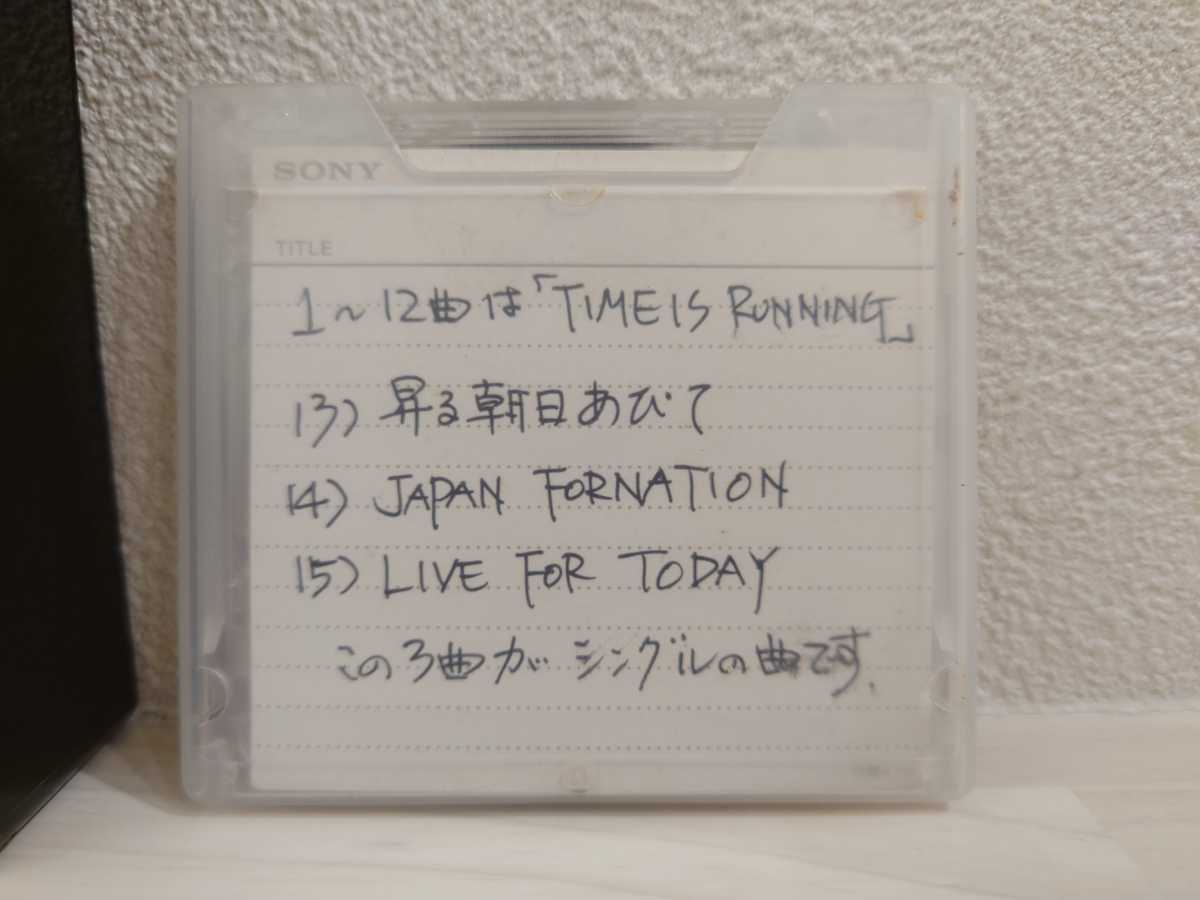 SONY
TITLE
1～12曲は「TIME IS RUNNING」
13) 昇る朝日あびて
14) JAPAN FORNATION
15) LIVE FOR TODAY
この3曲が シングルの曲です.